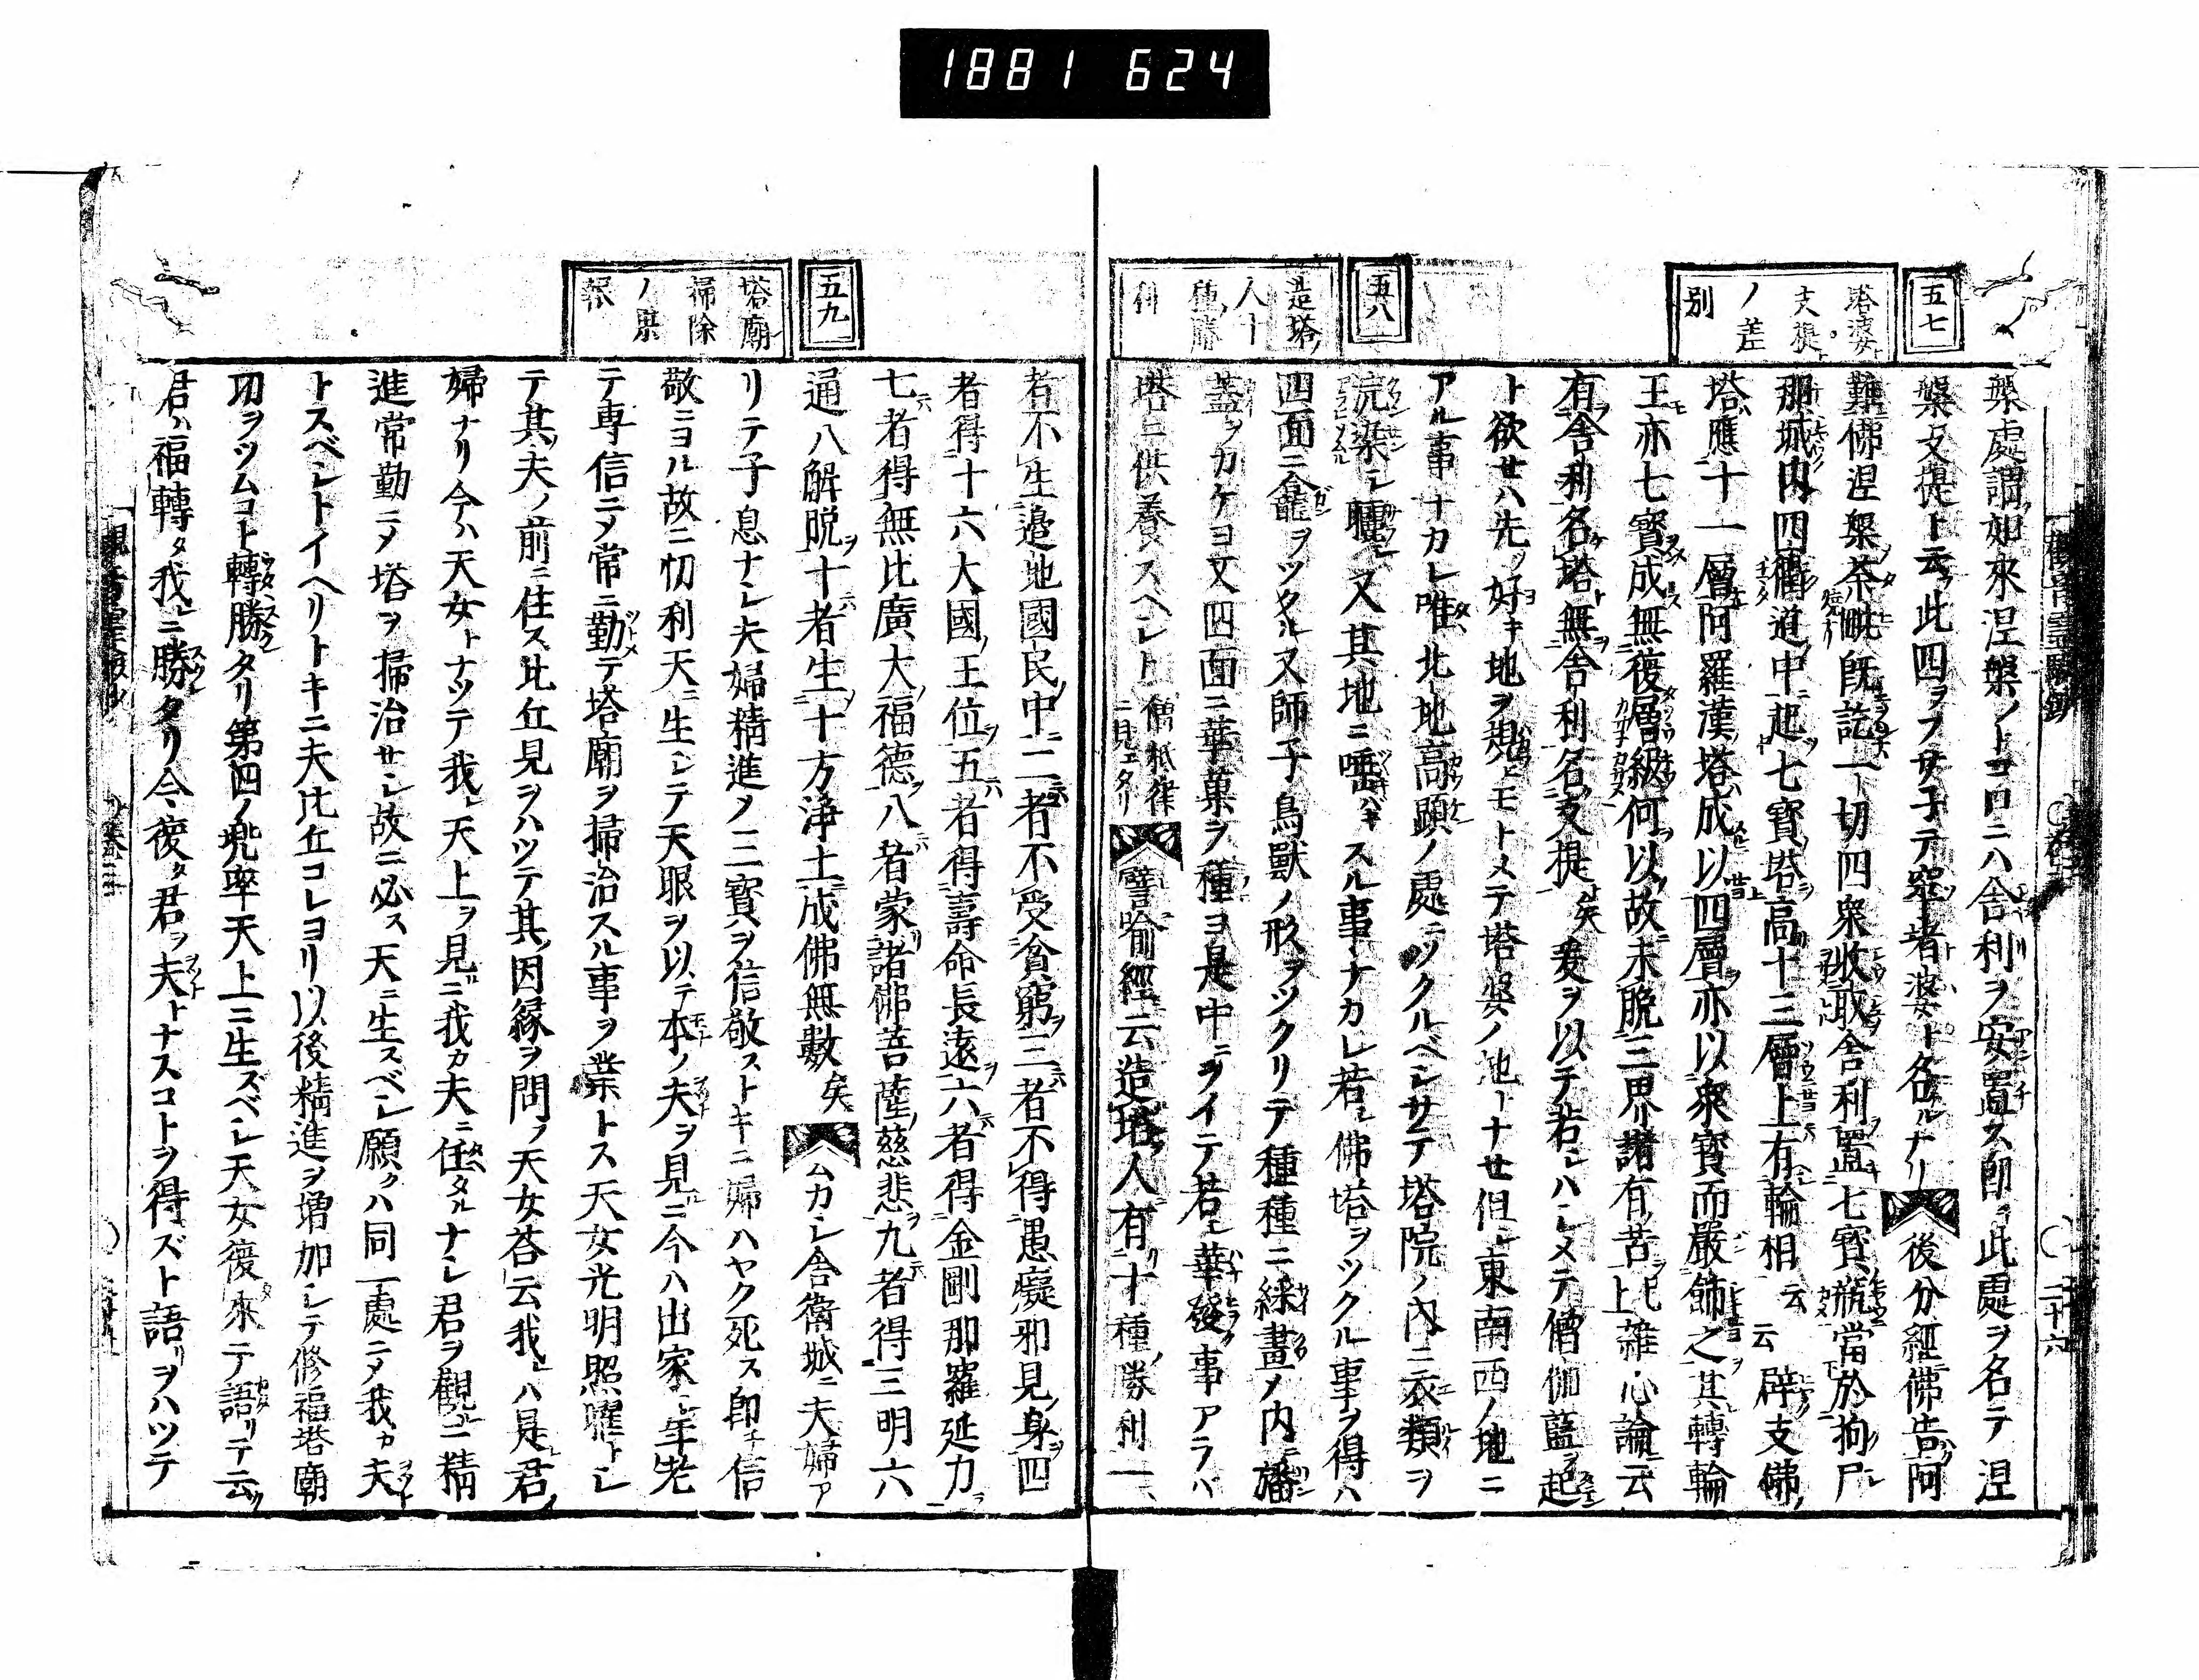 1881 624
五七
塔婆
支提ト
ノ差
別
槃處謂如來涅槃ノトコロニハ舎利ヲ安置ス即此處ヲ名テ涅
槃支提ト云此四ヲフサ子テ窣堵婆ト名ルナリ 後分經佛告阿
難佛涅槃荼毗既訖一切四衆收取舎利置七寳瓶當於拘尸
那城内四衢道中起七寳塔高十三層上有輪相 云云 辟支佛
塔應十一層阿羅漢塔成以四層亦以衆寳而嚴飾之其轉輪
王亦七寳成無復層級何以故未脱三界諸有苦 上 雜心論云
有舎利名塔無舎利名支提 矣 爰ヲ以テ若ハシメテ僧伽藍ヲ起
ト欲セハ先好キ地ヲモトメテ塔婆ノ地トナセ但東南西ノ地ニ
アル事ナカレ唯北地高顯ノ處ニツクルベシサテ塔院ノ内ニ衣類ヲ
浣染シ曬シ又其地ニ唾ハキスル事ナカレ若佛塔ヲツクル事ヲ得ハ
四面ニ龕ヲツクル又師子鳥獸ノ形ヲツクリテ種種ニ綵畫ノ内ニ旛
蓋ヲカケヨ又四面ニ華菓ヲ種ヨ是中ニヲイテ若華發事アラバ
塔ニ供養スヘシト 僧祇律ニ見エタリ 譬喩經云造塔人有十種勝利一
五八
造塔ノ
人十
種勝
利
者不生邉地國民中二者不受貧窮三者不得愚癡邪見身四
者得十六大國王位五者得壽命長遠六者得金剛那羅延力
七者得無比廣大福徳八者蒙諸佛菩薩慈悲九者得三明六
通八解脱十者生十方浄土成佛無數 矣 ムカシ舎衛城ニ夫婦ア
五九
塔廟
掃除
ノ果
報
リテ子息ナシ夫婦精進ノ三寳ヲ信敬ストキニ婦ハヤク死ス即チ信
敬ニヨル故ニ忉利天ニ生シテ天眼ヲ以テ本ノ夫ヲ見ニ今ハ出家シ年老
テ専信ニメ常ニ勤テ塔廟ヲ掃治スル事ヲ業トス天女光明照曜トシ
テ其夫ノ前ニ住ス比丘見ヲハツテ其因縁ヲ問フ天女荅云我ハ是君
婦ナリ今ハ天女トナツテ我天上ヲ見ニ我カ夫ニ任タルナシ君ヲ觀ニ精
進常勤ニメ塔ヲ掃治サレ故ニ必ス天ニ生スベシ願クハ同一處ニメ我カ夫
トスベシトイヘリトキニ夫比丘コレヨリ以後精進ヲ増加シテ修福塔廟
功ヲツムコト轉勝タリ第四ノ兠率天上ニ生ズベシ天女復來テ語リテ云
君カ福轉タ我ニ勝タリ今復タ君ヲ夫トナスコトヲ得ズト語リヲハツテ